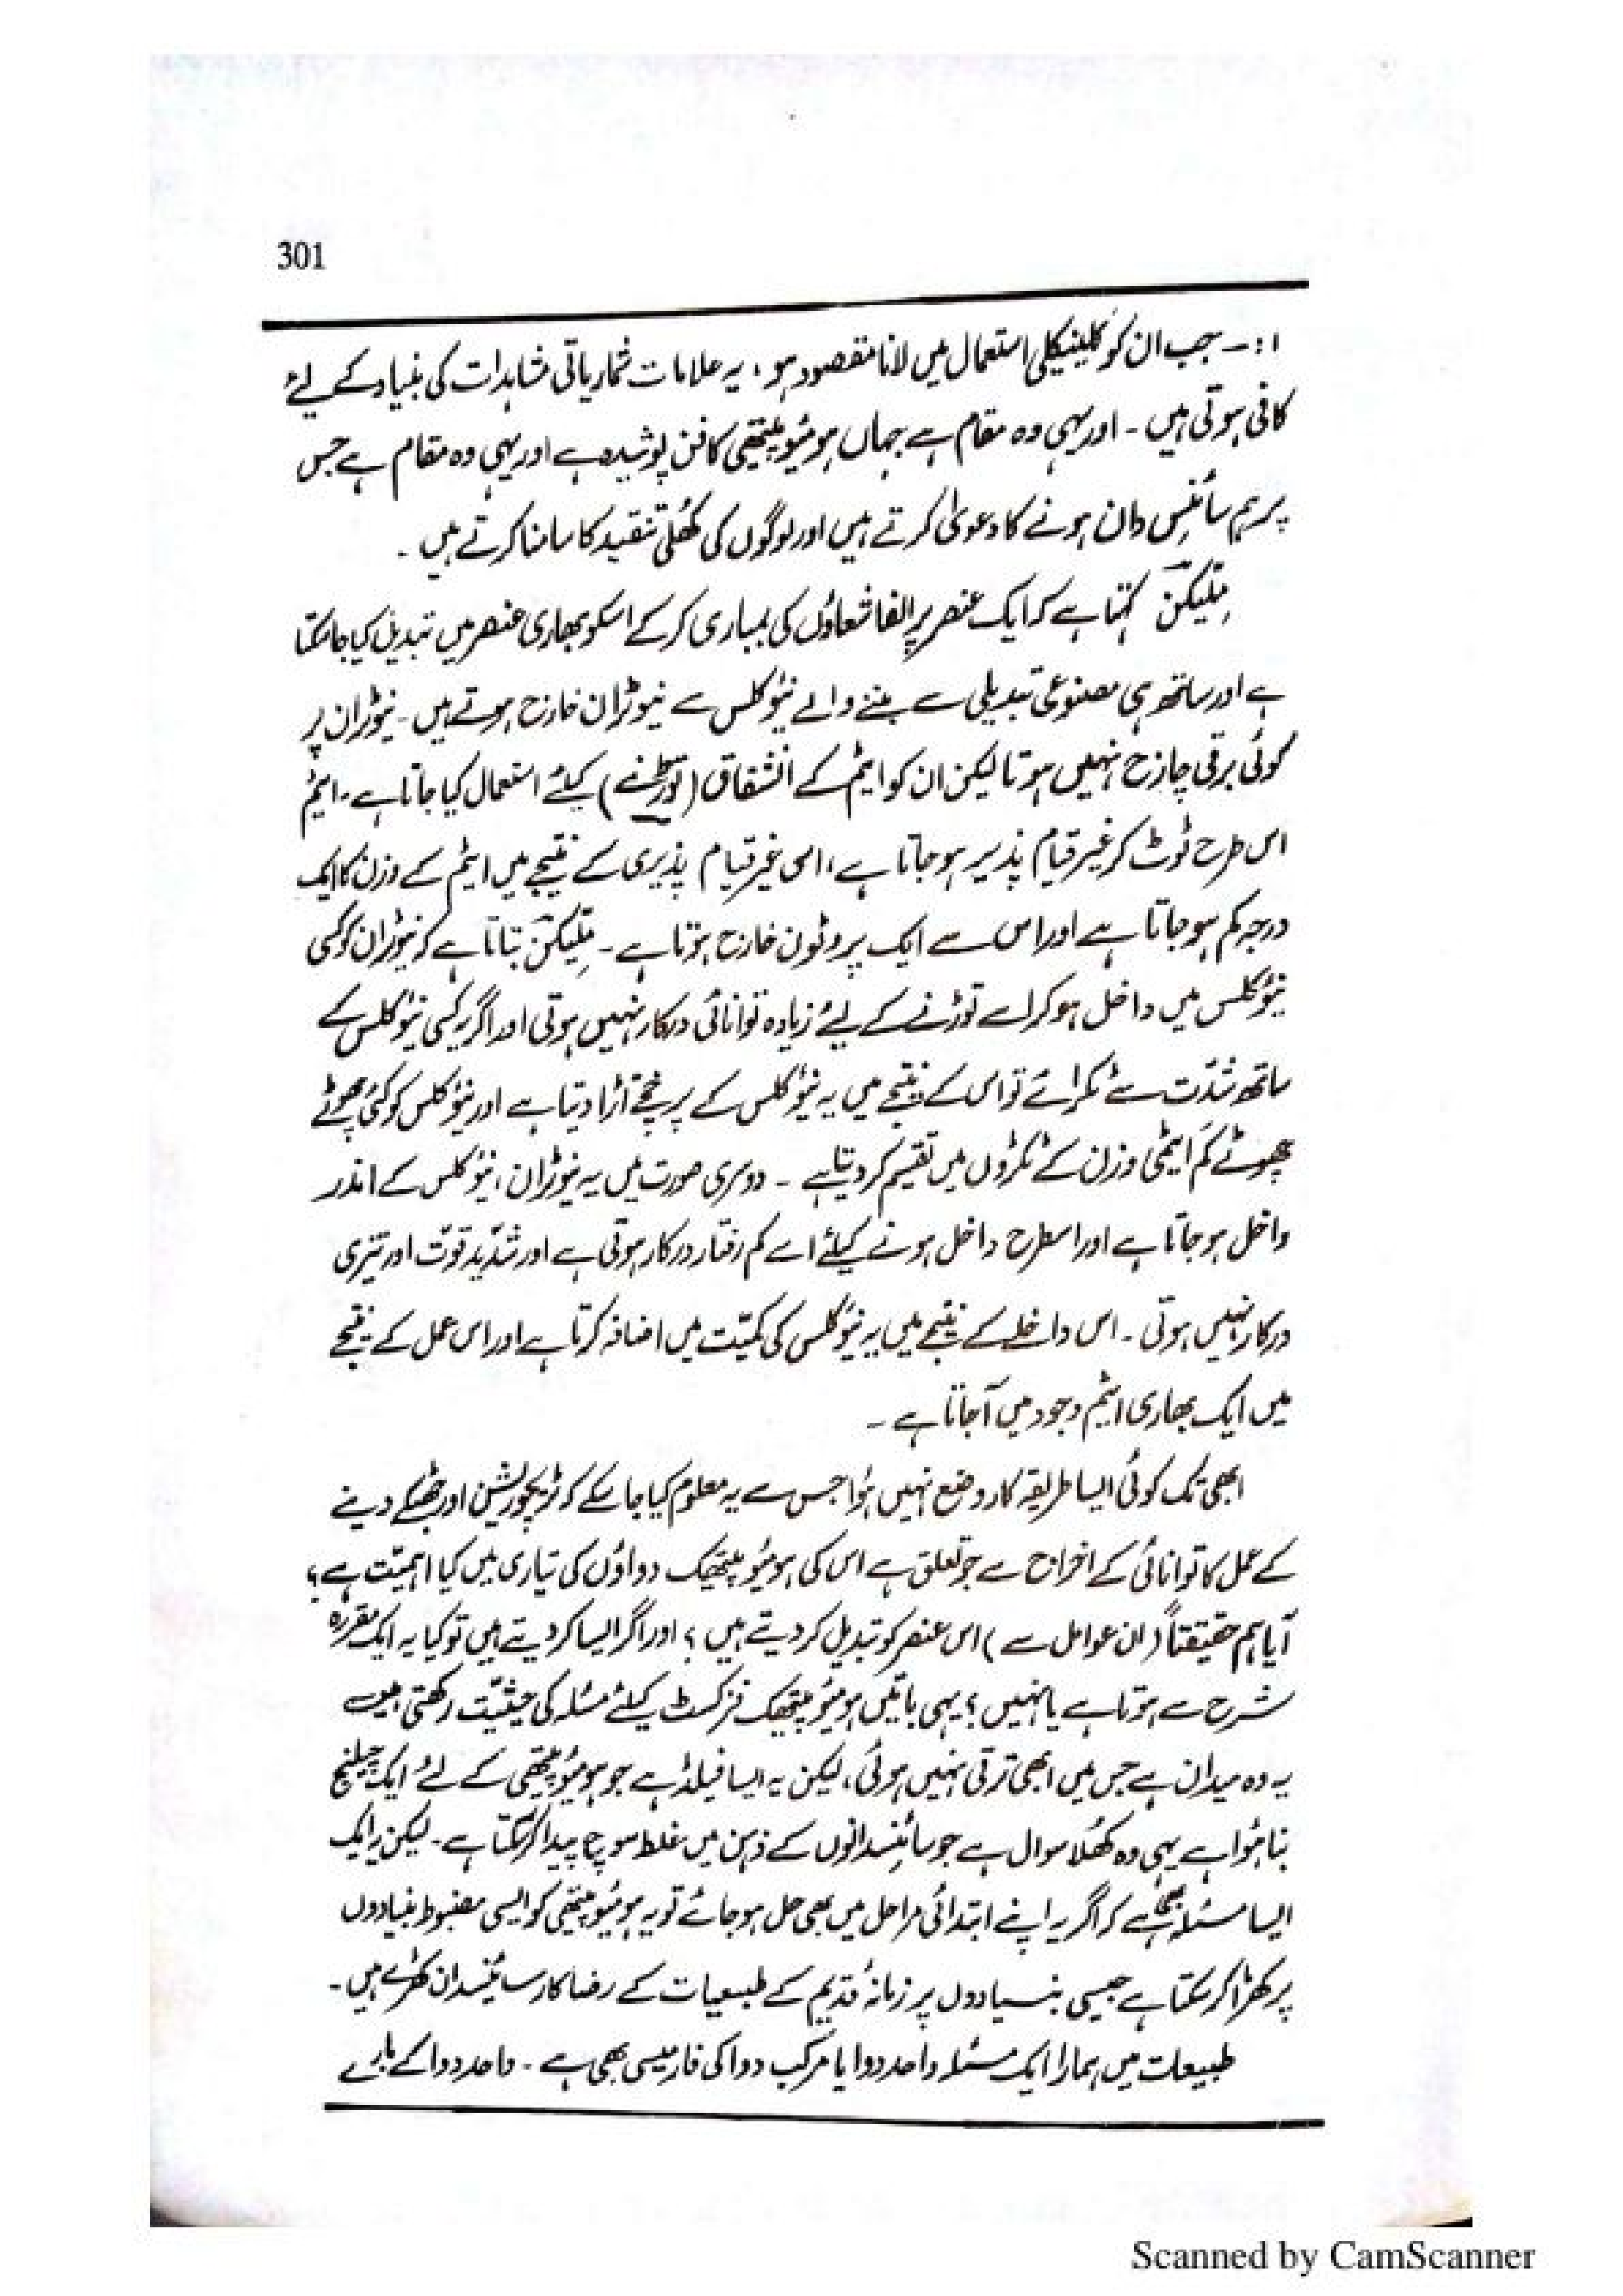 301
۱:- جب ان کو کلینیکلی استعمال میں لانا مقصود ہو، یہ علامات شماریاتی مشاہدات کی بنیاد کے لئے
کافی ہوتی ہیں۔ اور یہی وہ مقام ہے جہاں ہومیوپیتھی کا فن پوشیدہ ہے اور یہی وہ مقام ہے جس
پر ہم سائنس دان ہونے کا دعویٰ کرتے ہیں اور لوگوں کی کھلی تنقید کا سامنا کرتے ہیں۔
مِلیکن کہتا ہے کہ ایک عنصر پر الفا شعاؤں کی بمباری کر کے اسکو بھاری عنصر میں تبدیل کیا جا سکتا
ہے اور ساتھ ہی مصنوعی تبدیلی سے بننے والے نیوکلس سے نیوٹران خارج ہوتے ہیں۔ نیوٹران پر
کوئی برقی چارج نہیں ہوتا لیکن ان کو ایٹم کے انشقاق (توڑنے) کیلئے استعمال کیا جاتا ہے۔ ایٹم
اس طرح ٹوٹ کر غیر قیام پذیر ہو جاتا ہے، اسی غیر قیام پذیری کے نتیجے میں ایٹم کے وزن کا ایک
درجہ کم ہو جاتا ہے اور اس سے ایک پروٹون خارج ہوتا ہے۔ مِلیکن بتاتا ہے کہ نیوٹران کو کسی
نیوکلس میں داخل ہو کر اسے توڑنے کے لیے زیادہ توانائی درکار نہیں ہوتی اور اگر یہ کسی نیوکلس کے
ساتھ شدّت سے ٹکرائے تو اس کے نتیجے میں یہ نیوکلس کے پرخچے اُڑا دیتا ہے اور نیوکلس کو کئی چھوٹے
چھوٹے کم ایٹمی وزن کے ٹکڑوں میں تقسیم کر دیتا ہے۔ دوسری صورت میں یہ نیوٹران، نیوکلس کے اندر
داخل ہو جاتا ہے اور اسطرح داخل ہونے کیلئے اسے کم رفتار درکار ہوتی ہے اور شدید قوّت اور تیزی
درکار نہیں ہوتی۔ اس داخلے کے نتیجے میں یہ نیوکلس کی کمیّت میں اضافہ کرتا ہے اور اس عمل کے نتیجے
میں ایک بھاری ایٹم وجود میں آجاتا ہے۔
ابھی تک کوئی ایسا طریقہ کار وضع نہیں ہُوا جس سے یہ معلوم کیا جا سکے کہ ٹریچوریشن اور جھٹکے دینے
کے عمل کا توانائی کے اخراج سے جو تعلق ہے اس کی ہومیوپیتھک دواؤں کی تیاری میں کیا اہمیّت ہے؟
آیا ہم حقیقتاً (ان عوامل سے) اس عنصر کو تبدیل کر دیتے ہیں؟ اور اگر ایسا کر دیتے ہیں تو کیا یہ ایک مقررہ
شرح سے ہوتا ہے یا نہیں؟ یہی باتیں ہومیوپیتھک فزکسٹ کیلئے مسئلہ کی حیثیّت رکھتی ہیں
یہ وہ میدان ہے جس میں ابھی ترقی نہیں ہوئی، لیکن یہ ایسا فیلڈ ہے جو ہومیوپیتھی کے لئے ایک چیلنج
بنا ہُوا ہے یہی وہ کھُلا سوال ہے جو سائنسدانوں کے ذہن میں غلط سوچ پیدا کر سکتا ہے۔ لیکن یہ ایک
ایسا مسئلہ بھی ہے کہ اگر یہ اپنے ابتدائی مراحل میں بھی حل ہو جائے تو یہ ہومیوپیتھی کو ایسی مضبوط بنیادوں
پر کھڑا کر سکتا ہے جیسی بنیادوں پر زمانۂ قدیم کے طبیعیات کے رضا کار سائنسدان کھڑے ہیں۔
طبیعات میں ہمارا ایک مسئلہ واحد دوا یا مرکب دوا کی فارمیسی بھی ہے۔ واحد دوا کے بارے
Scanned by CamScanner